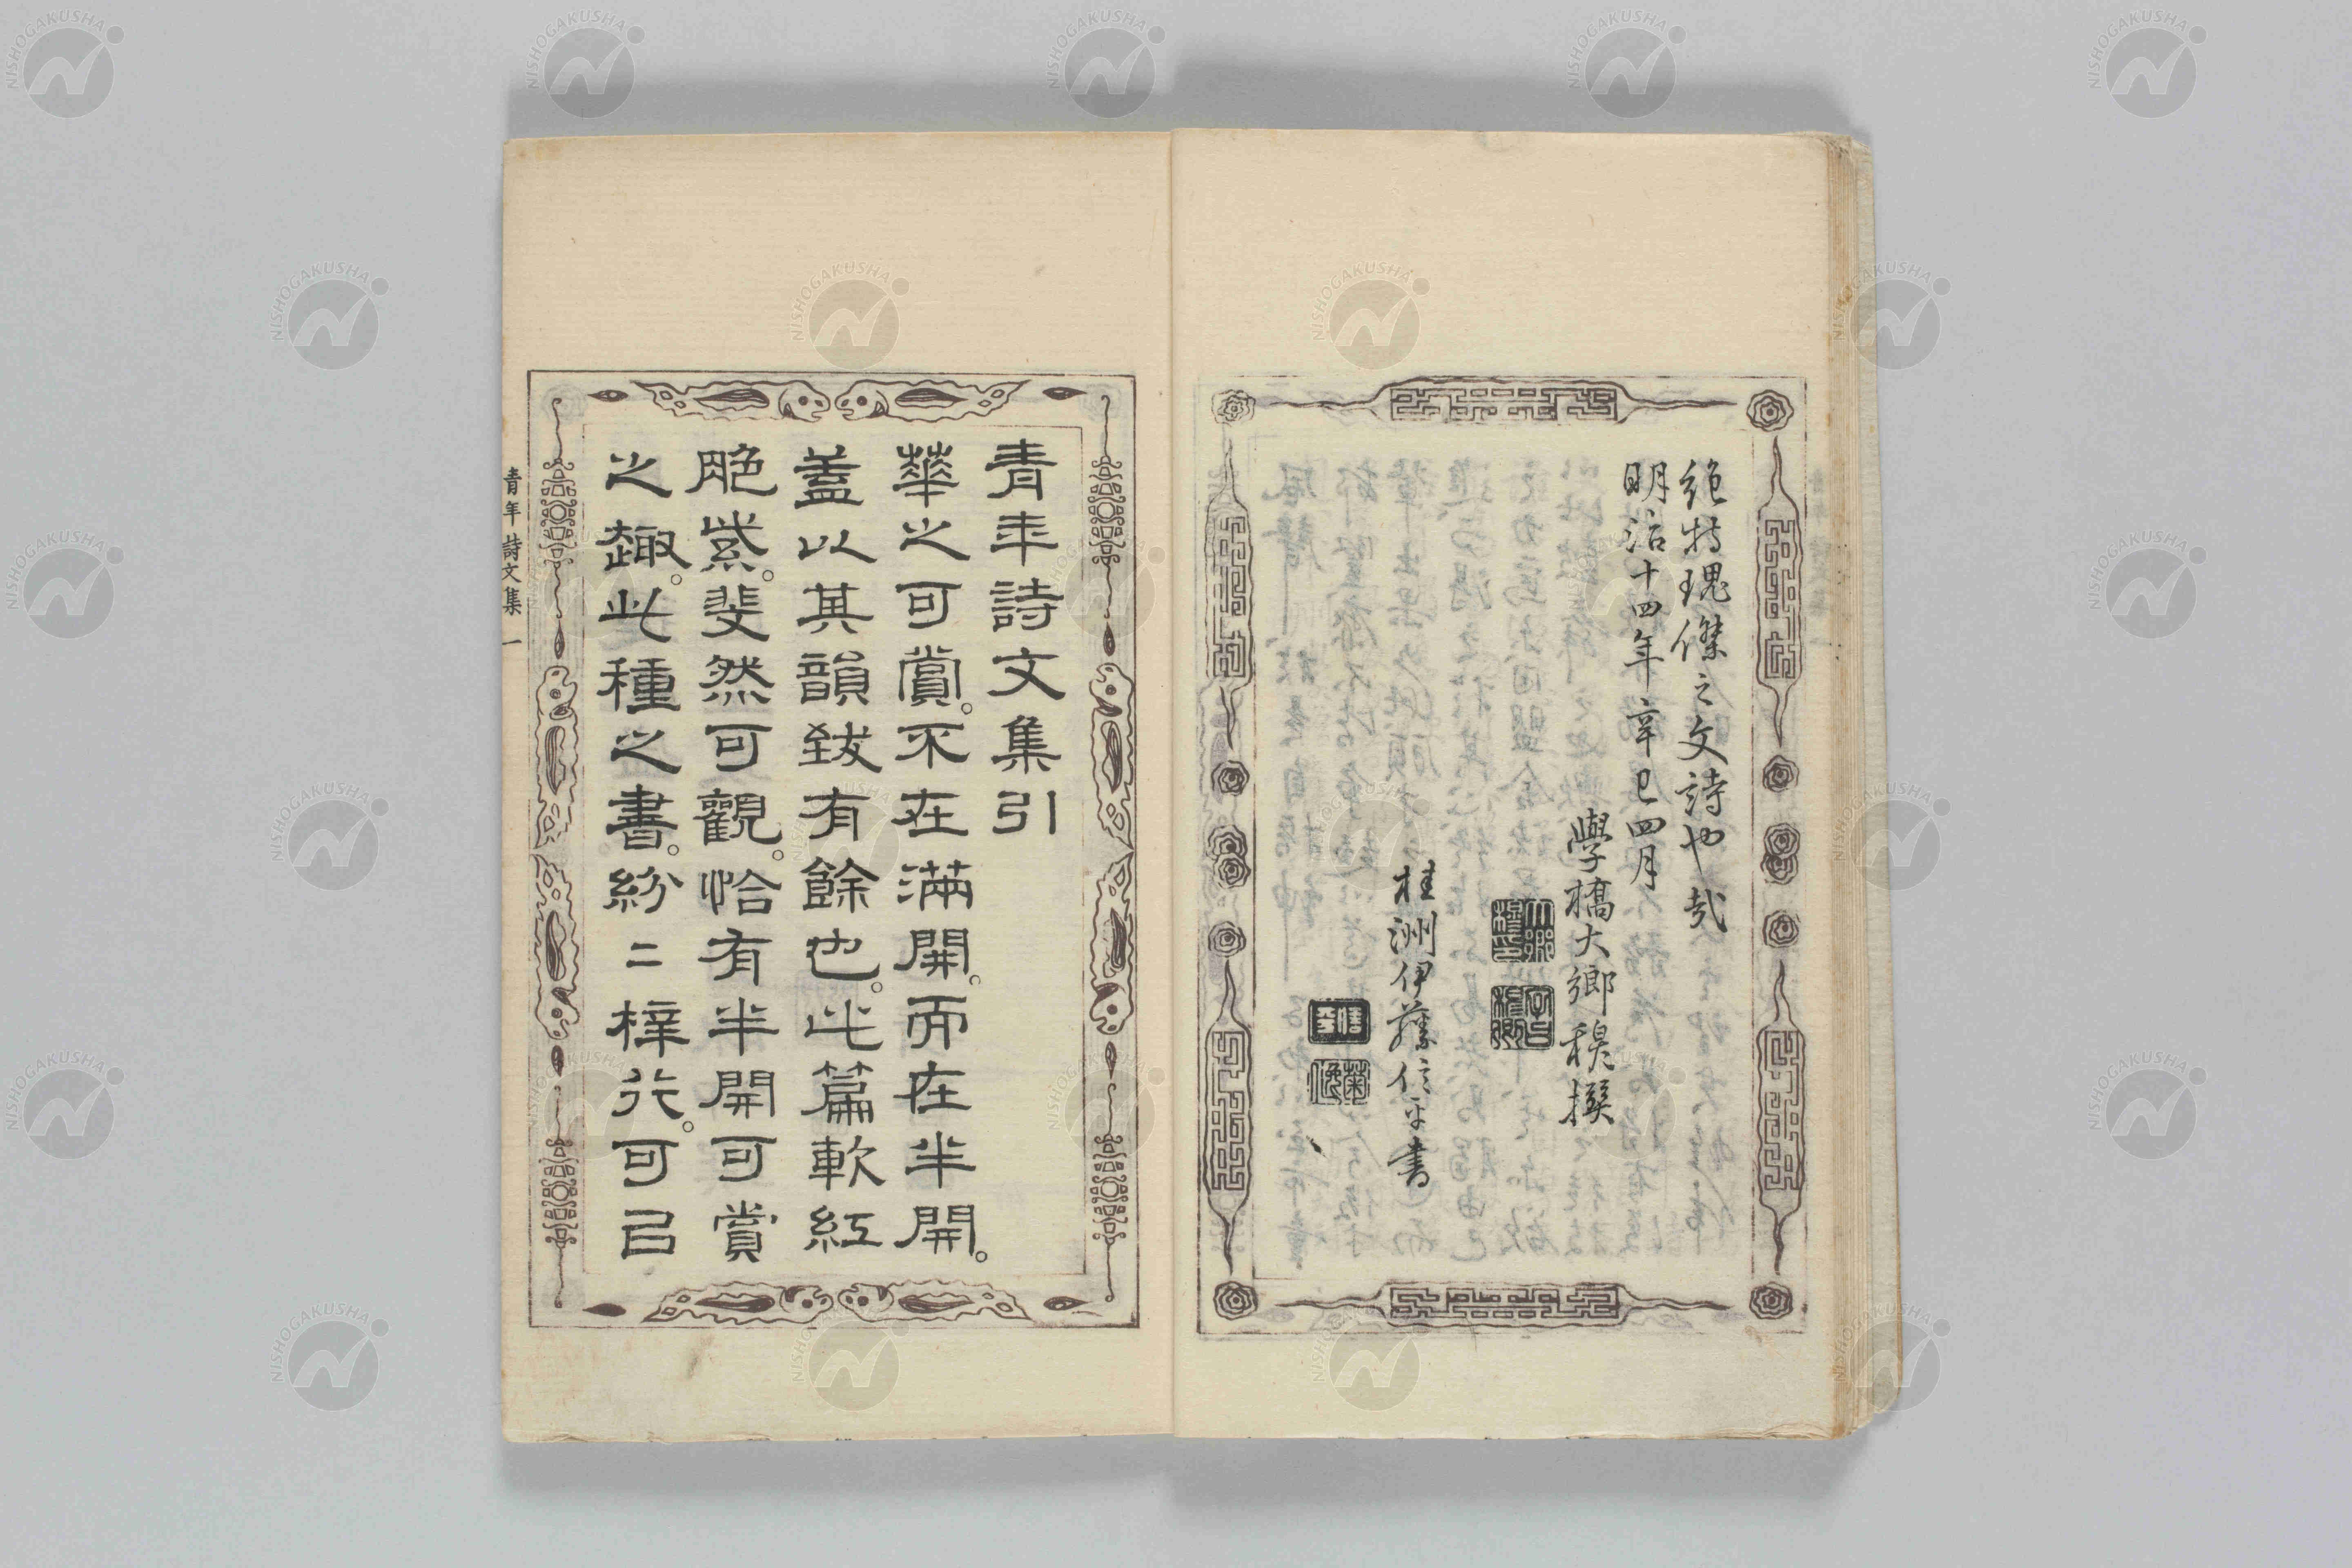 絶特瑰傑之文詩也哉
明治十四年辛巳四月
學橋大鄉穆撰
桂洲伊藤信平書
青年詩文集引
華之可賞。不在滿開。而在半開。
蓋以其韻致有餘也。此篇軟紅
脆紫。斐然可觀。恰有半開可賞
之趣。此種之書。紛二梓行。可㠯
青年詩文集 一
NISHOGAKUSHA